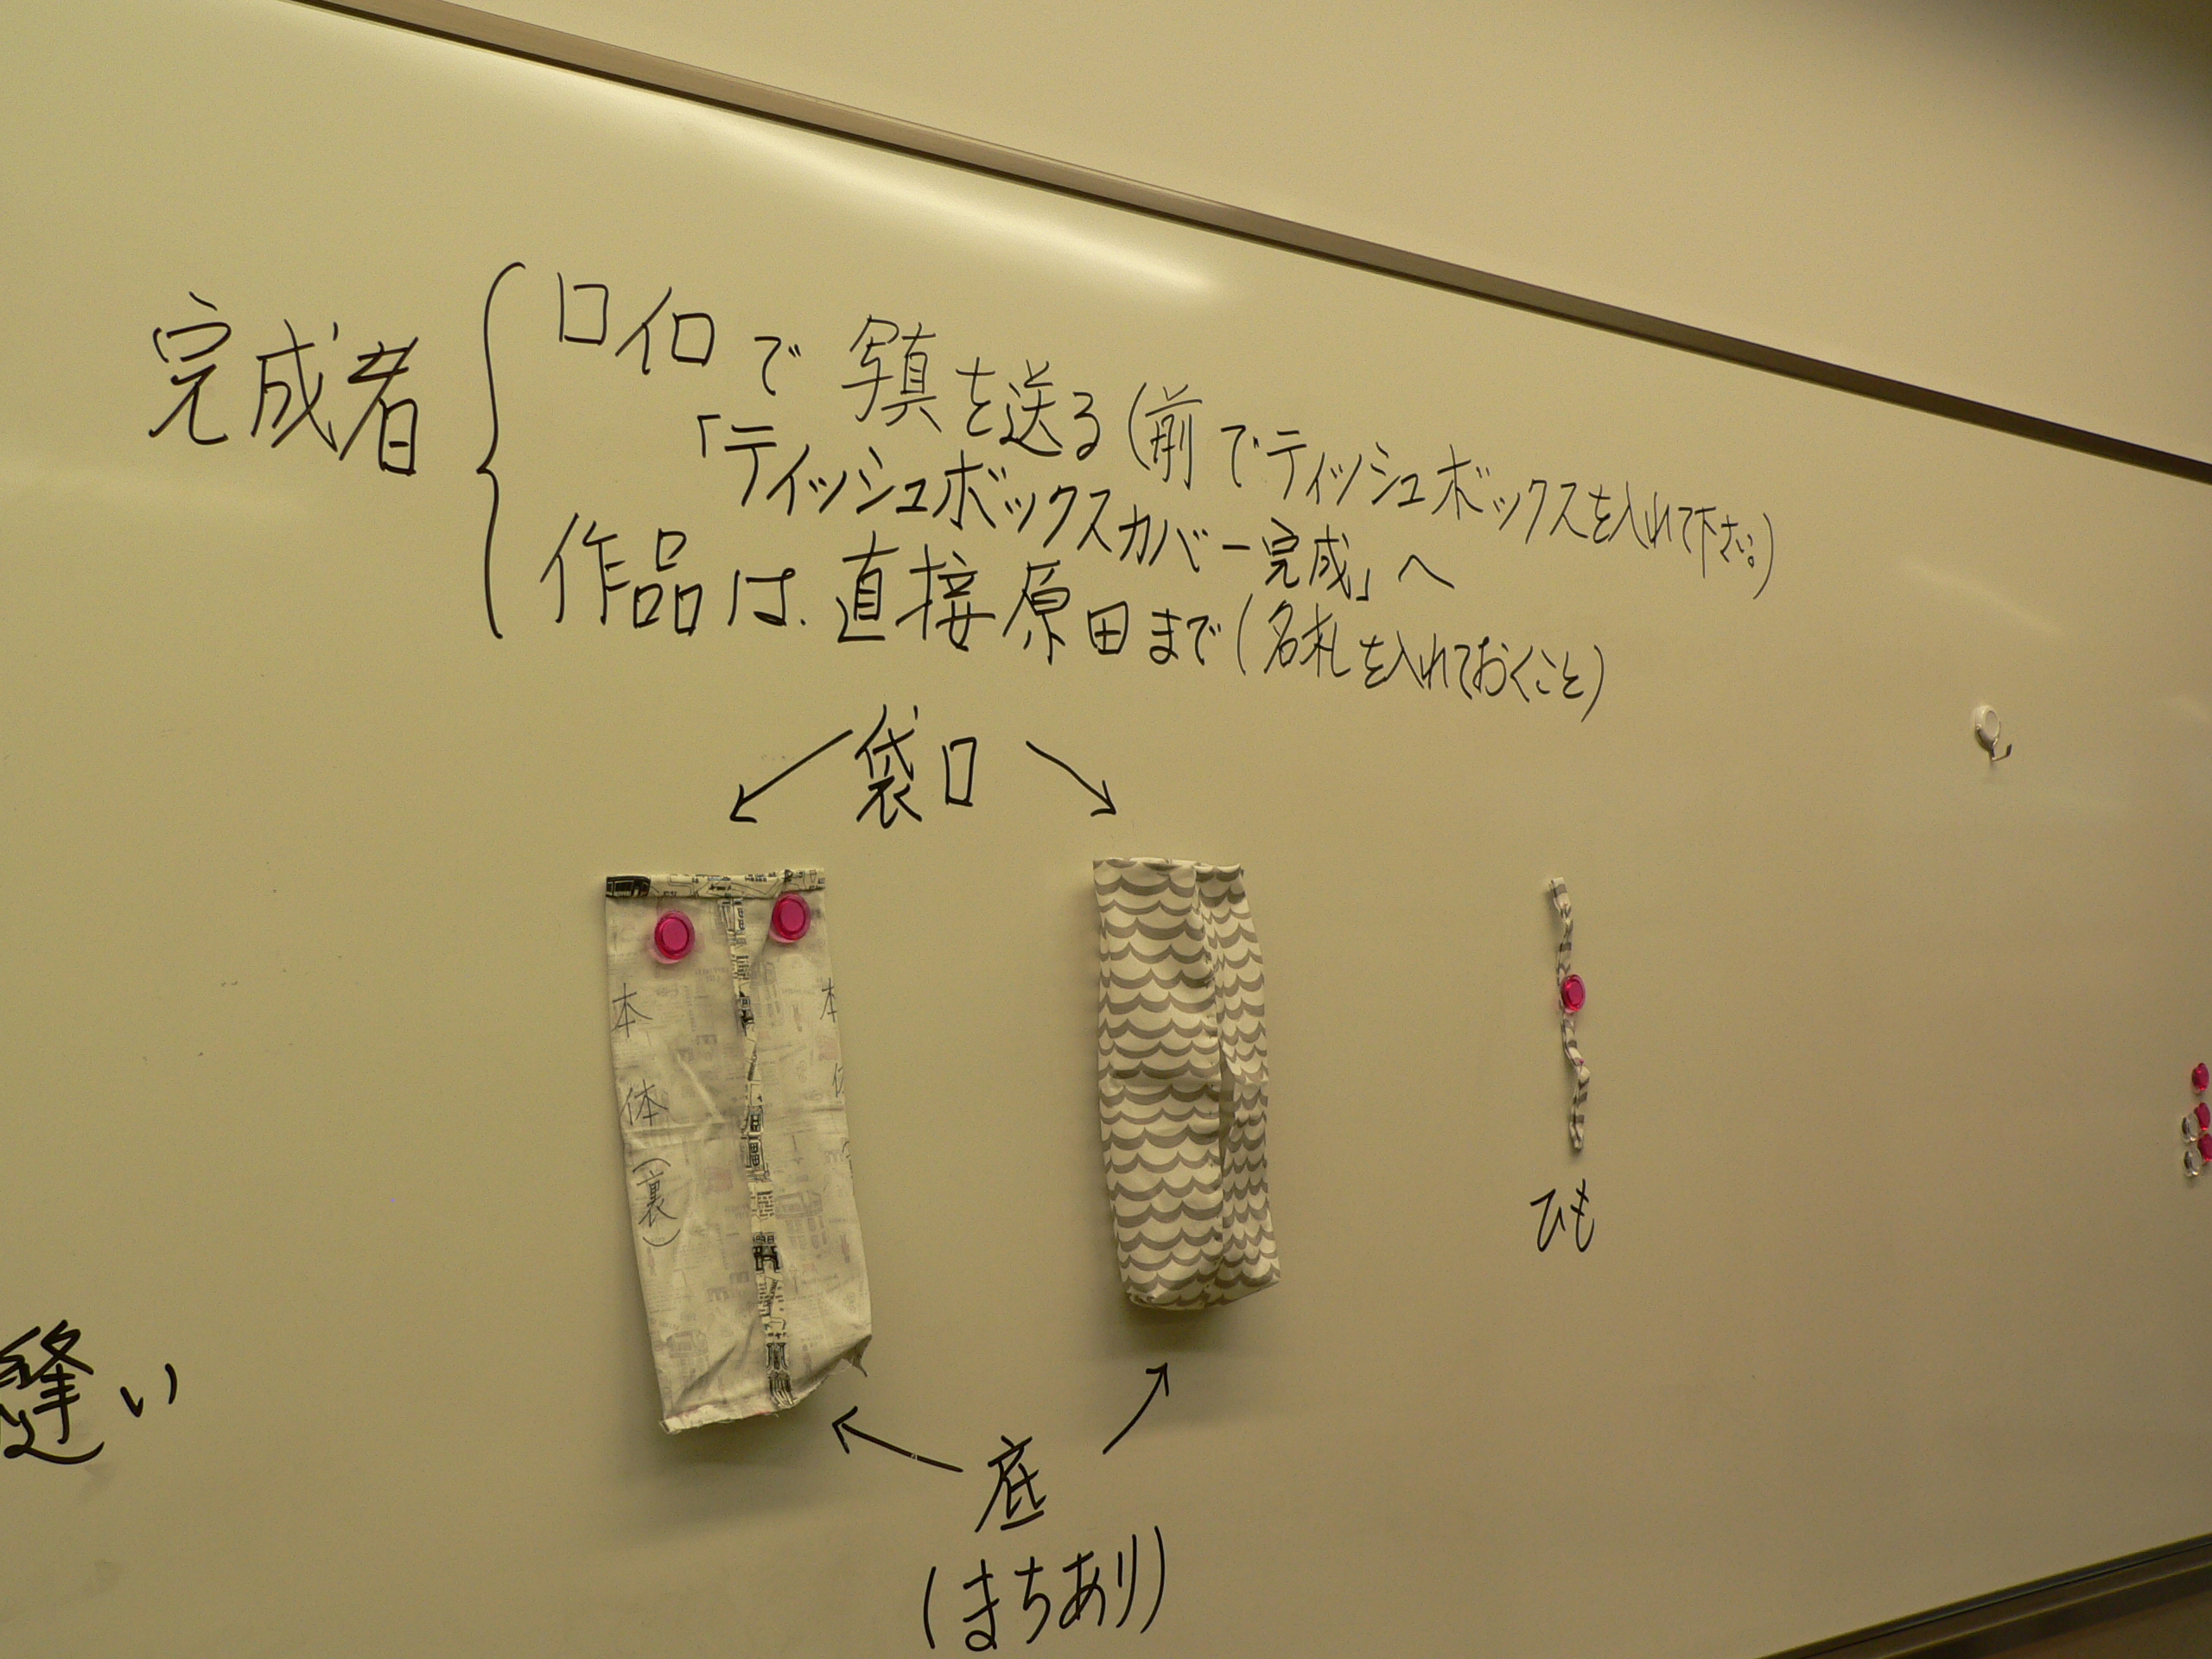 完成者
ロイロで写真を送る(前でティッシュボックスを入れて下さい。)
「ティッシュボックスカバー完成」へ
作品は、直接原田まで(名札を入れておくこと)
袋口
本体(裏)
本
ひも
縫い
底
(まちあり)